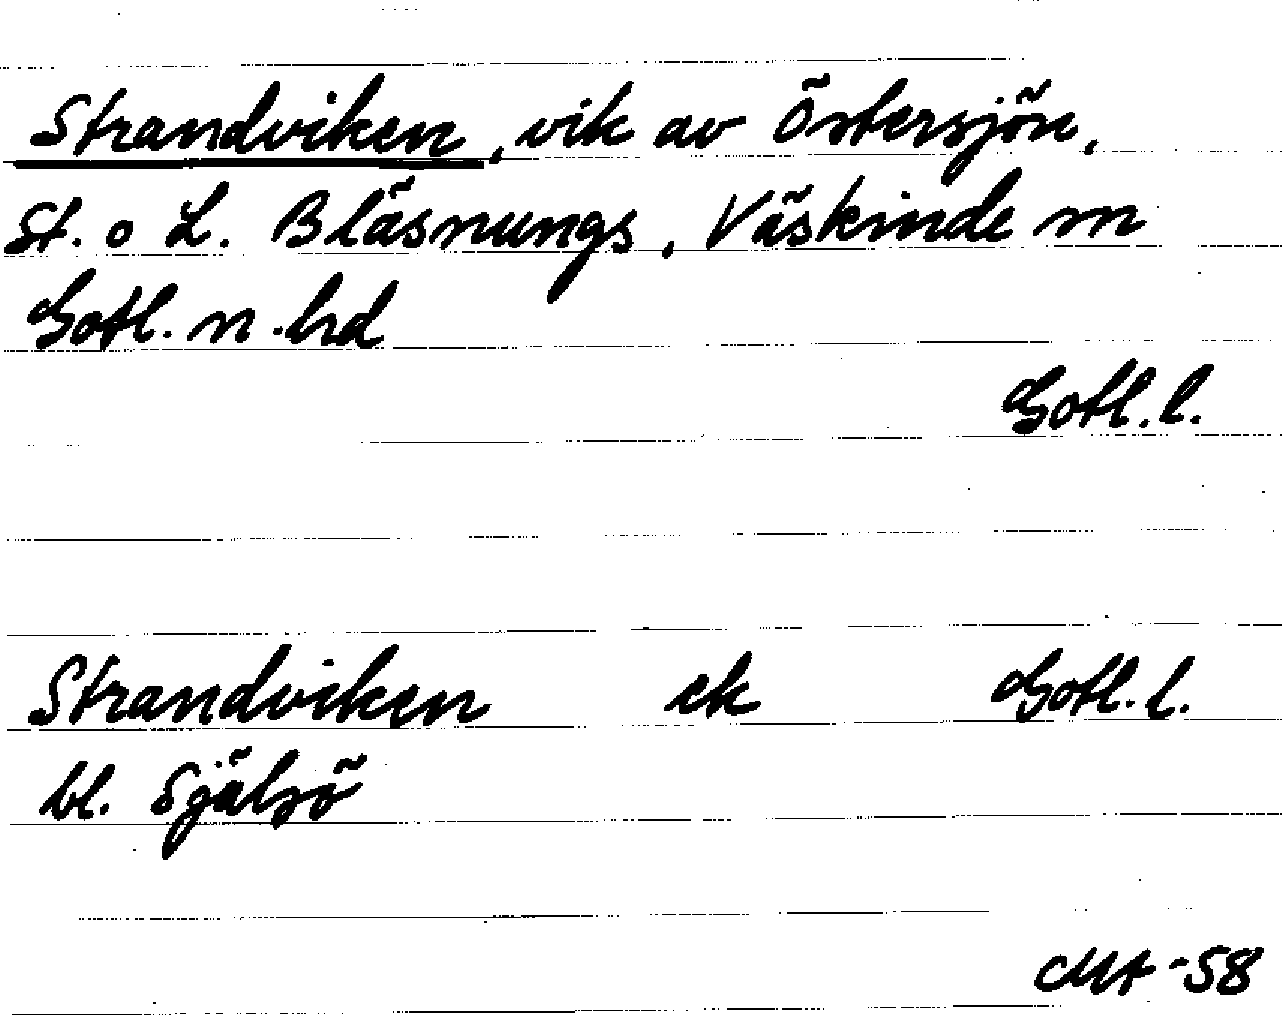 Strandviken, vik av Östersjön,
St. o L. Bläsnungs, Väskinde sn
Gotl. n. hd
Gotl. l.
Strandviken ek Gotl. l.
bl. Själsö
MA-58